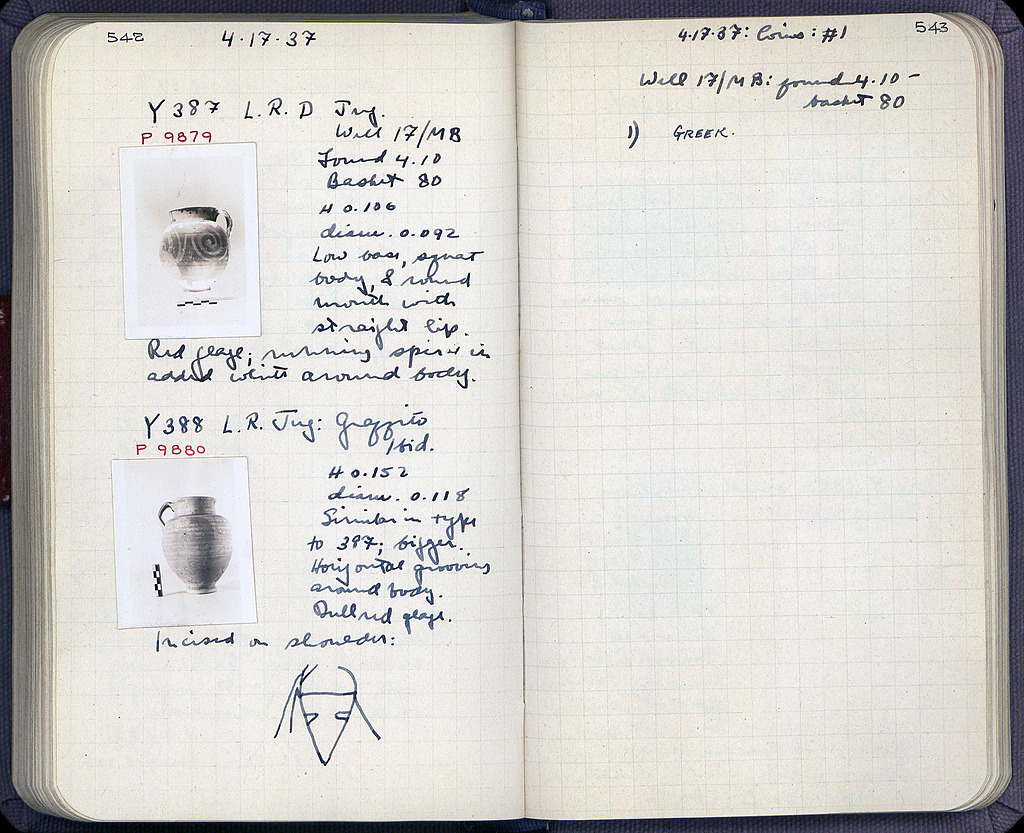 542
4.17.37
Y 387 L.R.D Jug.
P 9879
Well 17/MB
Found 4.10
Basket 80
H 0.106
diam. 0.092
Low base, squat
body, & round
mouth with
straight lip.
Red glaze; running spiral in
added white around body.
Y 388 L.R. Jug: Graffito
P 9880
Ibid.
H 0.152
diam. 0.118
Similar in type
to 387; bigger.
Horizontal grooving
around body.
Dull red glaze.
Incised on shoulder:
4.17.37: Coins: #1
543
Well 17/MB: found 4.10 -
basket 80
1) GREEK.